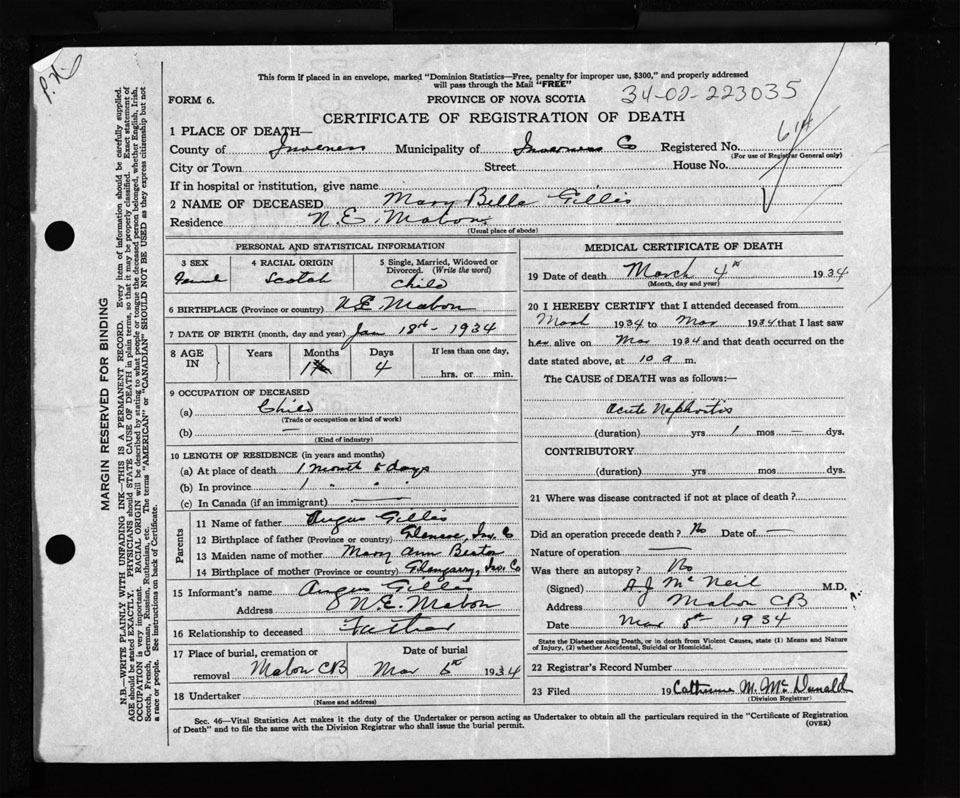 P.H.
This form if placed in an envelope, marked "Dominion Statistics—Free, penalty for improper use, $300," and properly addressed
will pass through the Mail "FREE"
FORM 6.
PROVINCE OF NOVA SCOTIA
34-02-223035
CERTIFICATE OF REGISTRATION OF DEATH
614
1 PLACE OF DEATH—
County of Inverness Municipality of Inverness Co Registered No.
(For use of Registrar General only)
City or Town Street House No.
If in hospital or institution, give name
2 NAME OF DECEASED Mary Bella Gillis
Residence N. E. Mabou
(Usual place of abode)
PERSONAL AND STATISTICAL INFORMATION
3 SEX 4 RACIAL ORIGIN 5 Single, Married, Widowed or
Divorced. (Write the word)
Scotch Child
6 BIRTHPLACE (Province or country) N E Mabou
7 DATE OF BIRTH (month, day and year) Jan 18th - 1934
8 AGE IN Years Months Days If less than one day,
1 4 hrs. or min.
9 OCCUPATION OF DECEASED
(a) Child
(Trade or occupation or kind of work)
(b) —
(Kind of industry)
10 LENGTH OF RESIDENCE (in years and months)
(a) At place of death 1 month 5 days
(b) In province 1 " "
(c) In Canada (if an immigrant) —
Parents
11 Name of father Angus Gillis
12 Birthplace of father (Province or country) Glencoe, Inv. C
13 Maiden name of mother Mary Ann Beaton
14 Birthplace of mother (Province or country) Glengarry, Inv. Co
15 Informant's name Angus Gillis
Address N E. Mabou
16 Relationship to deceased Father
17 Place of burial, cremation or removal Mabou CB
Date of burial Mar 6th 1934
18 Undertaker
(Name and address)
MEDICAL CERTIFICATE OF DEATH
19 Date of death March 4th 1934
(Month, day and year)
20 I HEREBY CERTIFY that I attended deceased from
March 1934 to Mar 1934 that I last saw
her alive on Mar 1934 and that death occurred on the
date stated above, at 10 a m.
The CAUSE of DEATH was as follows:—
Acute Nephritis
(duration) yrs 1 mos — dys.
CONTRIBUTORY
(duration) yrs mos dys.
21 Where was disease contracted if not at place of death?
Did an operation precede death? No Date of —
Nature of operation —
Was there an autopsy? No
(Signed) A J McNeil M.D.
Address Mabou CB
Date Mar 5th 1934
State the Disease causing Death, or in death from Violent Causes, state (1) Means and Nature
of Injury, (2) whether Accidental, Suicidal or Homicidal.
22 Registrar's Record Number
23 Filed 19 Catherine M. McDonald
(Division Registrar)
Sec. 46—Vital Statistics Act makes it the duty of the Undertaker or person acting as Undertaker to obtain all the particulars required in the "Certificate of Registration
of Death" and to file the same with the Division Registrar who shall issue the burial permit.
(OVER)
MARGIN RESERVED FOR BINDING
N.B.—WRITE PLAINLY WITH UNFADING INK—THIS IS A PERMANENT RECORD. Every item of information should be carefully supplied.
AGE should be stated EXACTLY. PHYSICIANS should STATE CAUSE OF DEATH in plain terms, so that it may be properly classified. Exact statement of
OCCUPATION is very important. RACIAL ORIGIN will be described by stating to what people or tongue the deceased person belonged, whether English, Irish,
Scotch, French, German, Russian, Ruthenian, etc. The terms "AMERICAN" or "CANADIAN" SHOULD NOT BE USED as they express citizenship but not
a race or people. See instructions on back of Certificate.